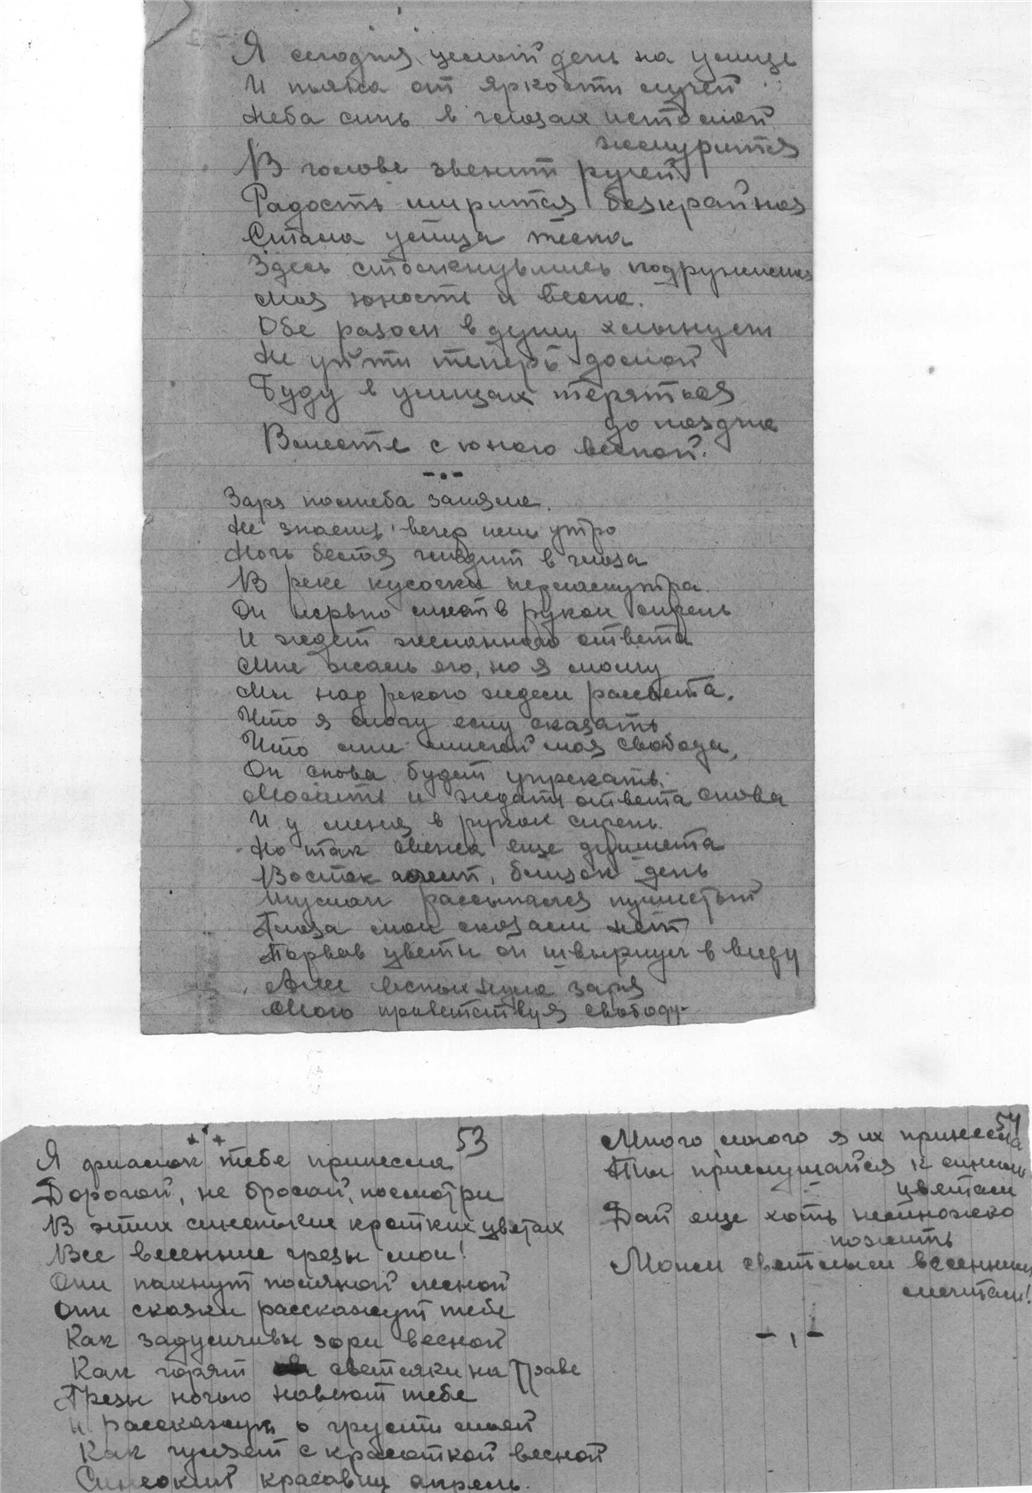 Я сегодня целый день на улице
И пьяна от яркости лучей
Неба синь в глазах истомой
жмурится
В голове звенит ручей
Радость ширится бескрайная
Стала улица тесна
Здесь столкнулись подружился
Моя юность и весна.
Обе разом в душу хлынули
Не уйти теперь домой
Буду в улицах теряться
до поздна
Вместе с юною весной.
– . –
Заря полнеба заняла.
Не знаешь вечер иль утро
Ночь белая глядит в глаза
В реке кусочки перламутра.
Он нервно мнет в руках сирень
И ждет желанного ответа
Мне жаль его, но я молчу
Мы над рекою ждем рассвета.
Что я смогу ему сказать
Что мне милей моя свобода,
Он снова будет упрекать,
Молить и ждать ответа снова
И у меня в руках сирень.
Но так свежа еще душиста
Восток горит, близок день
Туман рассыпался пушистый
Глаза мои сказали нет
Порвав цветы он швырнул в воду
Заря
Мою приветствуя свободу.
53
Я фиалок тебе принесла
Дорогой, не бросай, посмотри
В этих синеньких кротких цветах
Все весенние грезы мои!
Они пахнут поляной лесной
Они сказки расскажут тебе
Как задумчивы зори весной
Как горят светляки на траве
Грезы ночью навеют тебе
И расскажут о грусти моей
Как гуляет с красоткой весной
Синеокий красавец апрель.
54
Много много я их принесла
Ты прислушайся к синим
цветам
Дай еще хоть немножко
пожить
Моим светлым весенним
мечтам!
– , –